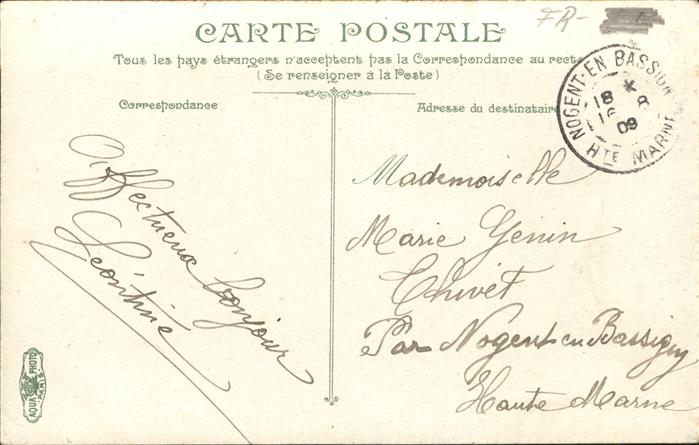 FR-
CARTE POSTALE
Tous les pays étrangers n'acceptent pas la Correspondance au recto
(Se renseigner à la Poste)
Correspondance
Adresse du destinataire
NOGENT-EN-BASSIGNY
18 K
16 8
09
HTE MARNE
Affectueux bonjour
Léontine
Mademoiselle
Marie Génin
Thivet
Par Nogent en Bassigny
Haute Marne
AQUA PHOTO
PARIS